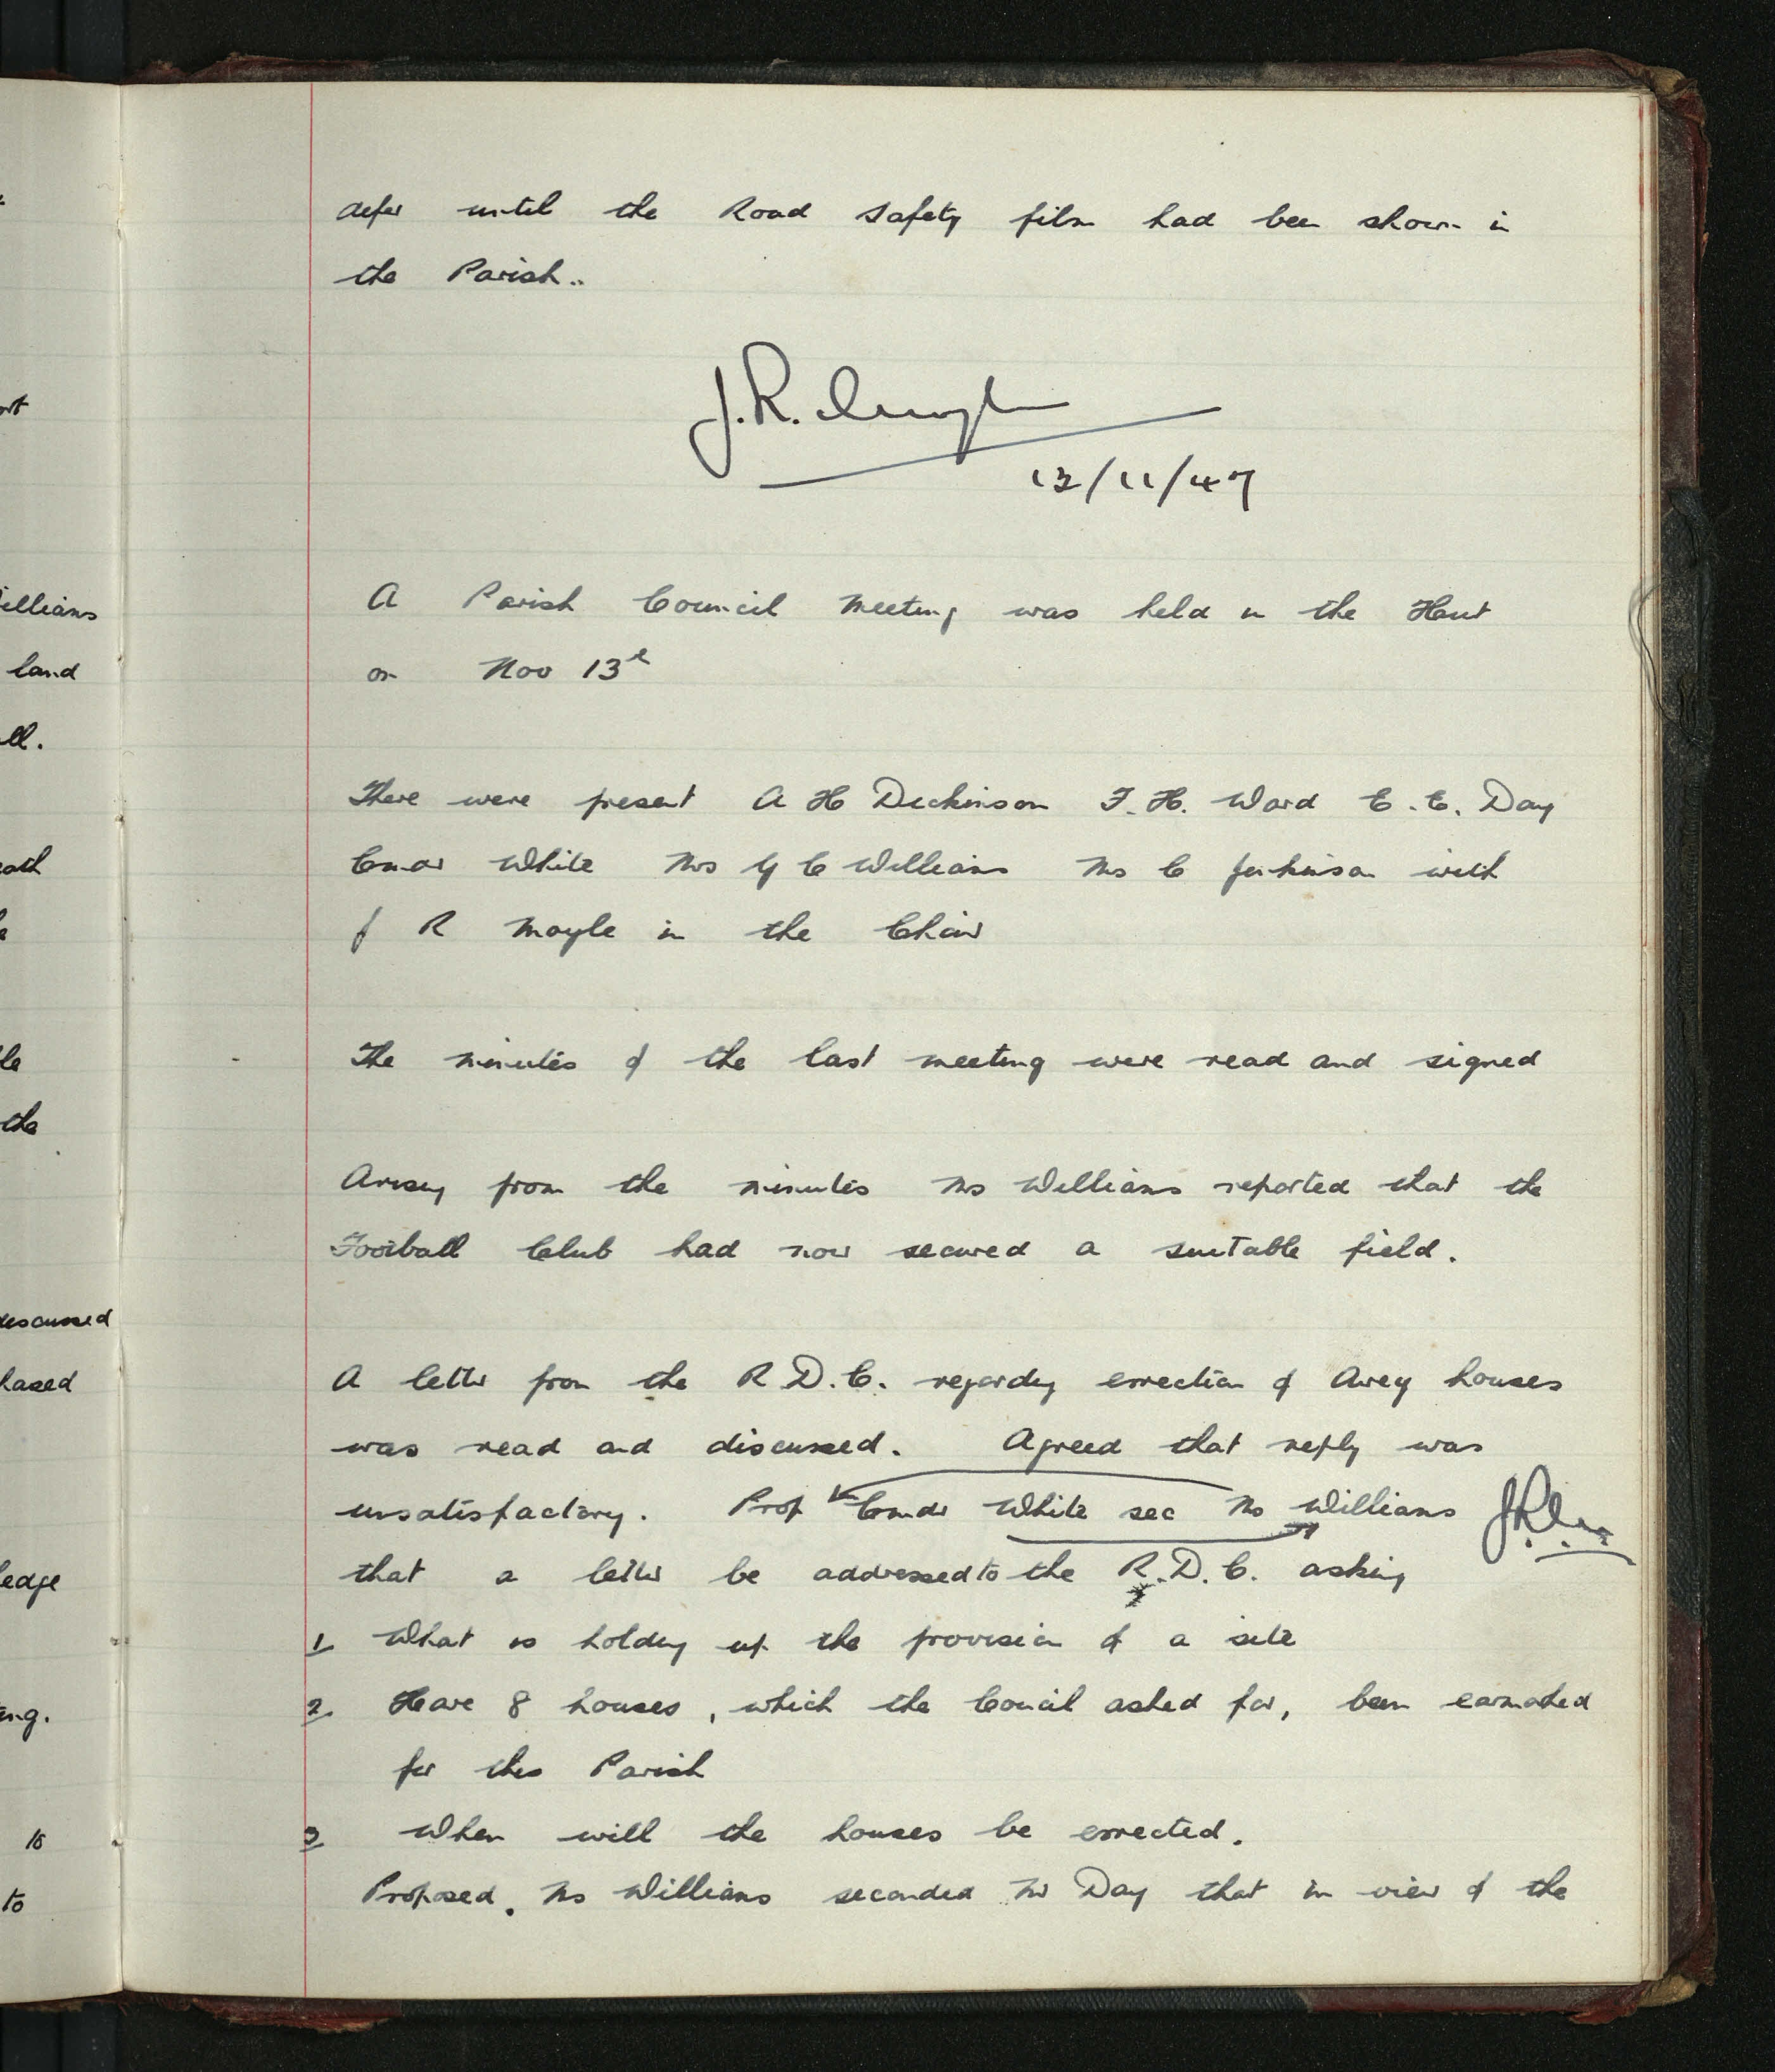 defer until the Road Safety film had been shown in
the Parish..
J.R. Moyle
13/11/47
A Parish Council Meeting was held in the Hut
on Nov 13th
There were present A H Dickinson F. H. Ward E. E. Day
Cmdr White Mrs G E Williams Mrs C Jenkinson with
J R Moyle in the Chair
The minutes of the last meeting were read and signed
Arising from the minutes Mrs Williams reported that the
Football Club had now secured a suitable field.
A letter from the R D.C. regarding errection of Airey houses
was read and discussed. Agreed that reply was
unsatisfactory. Prop Cmdr White sec Mrs Williams
that a letter be addressed to the R.D.C. asking
1 What is holding up the provision of a site
2. Have 8 houses, which the Council asked for, been earmarked
for this Parish
3 When will the houses be errected.
Proposed. Mrs Williams seconded Mr Day that in view of the
illians
land
ll.
le
the
discussed
hased
ledge
ing.
to
to